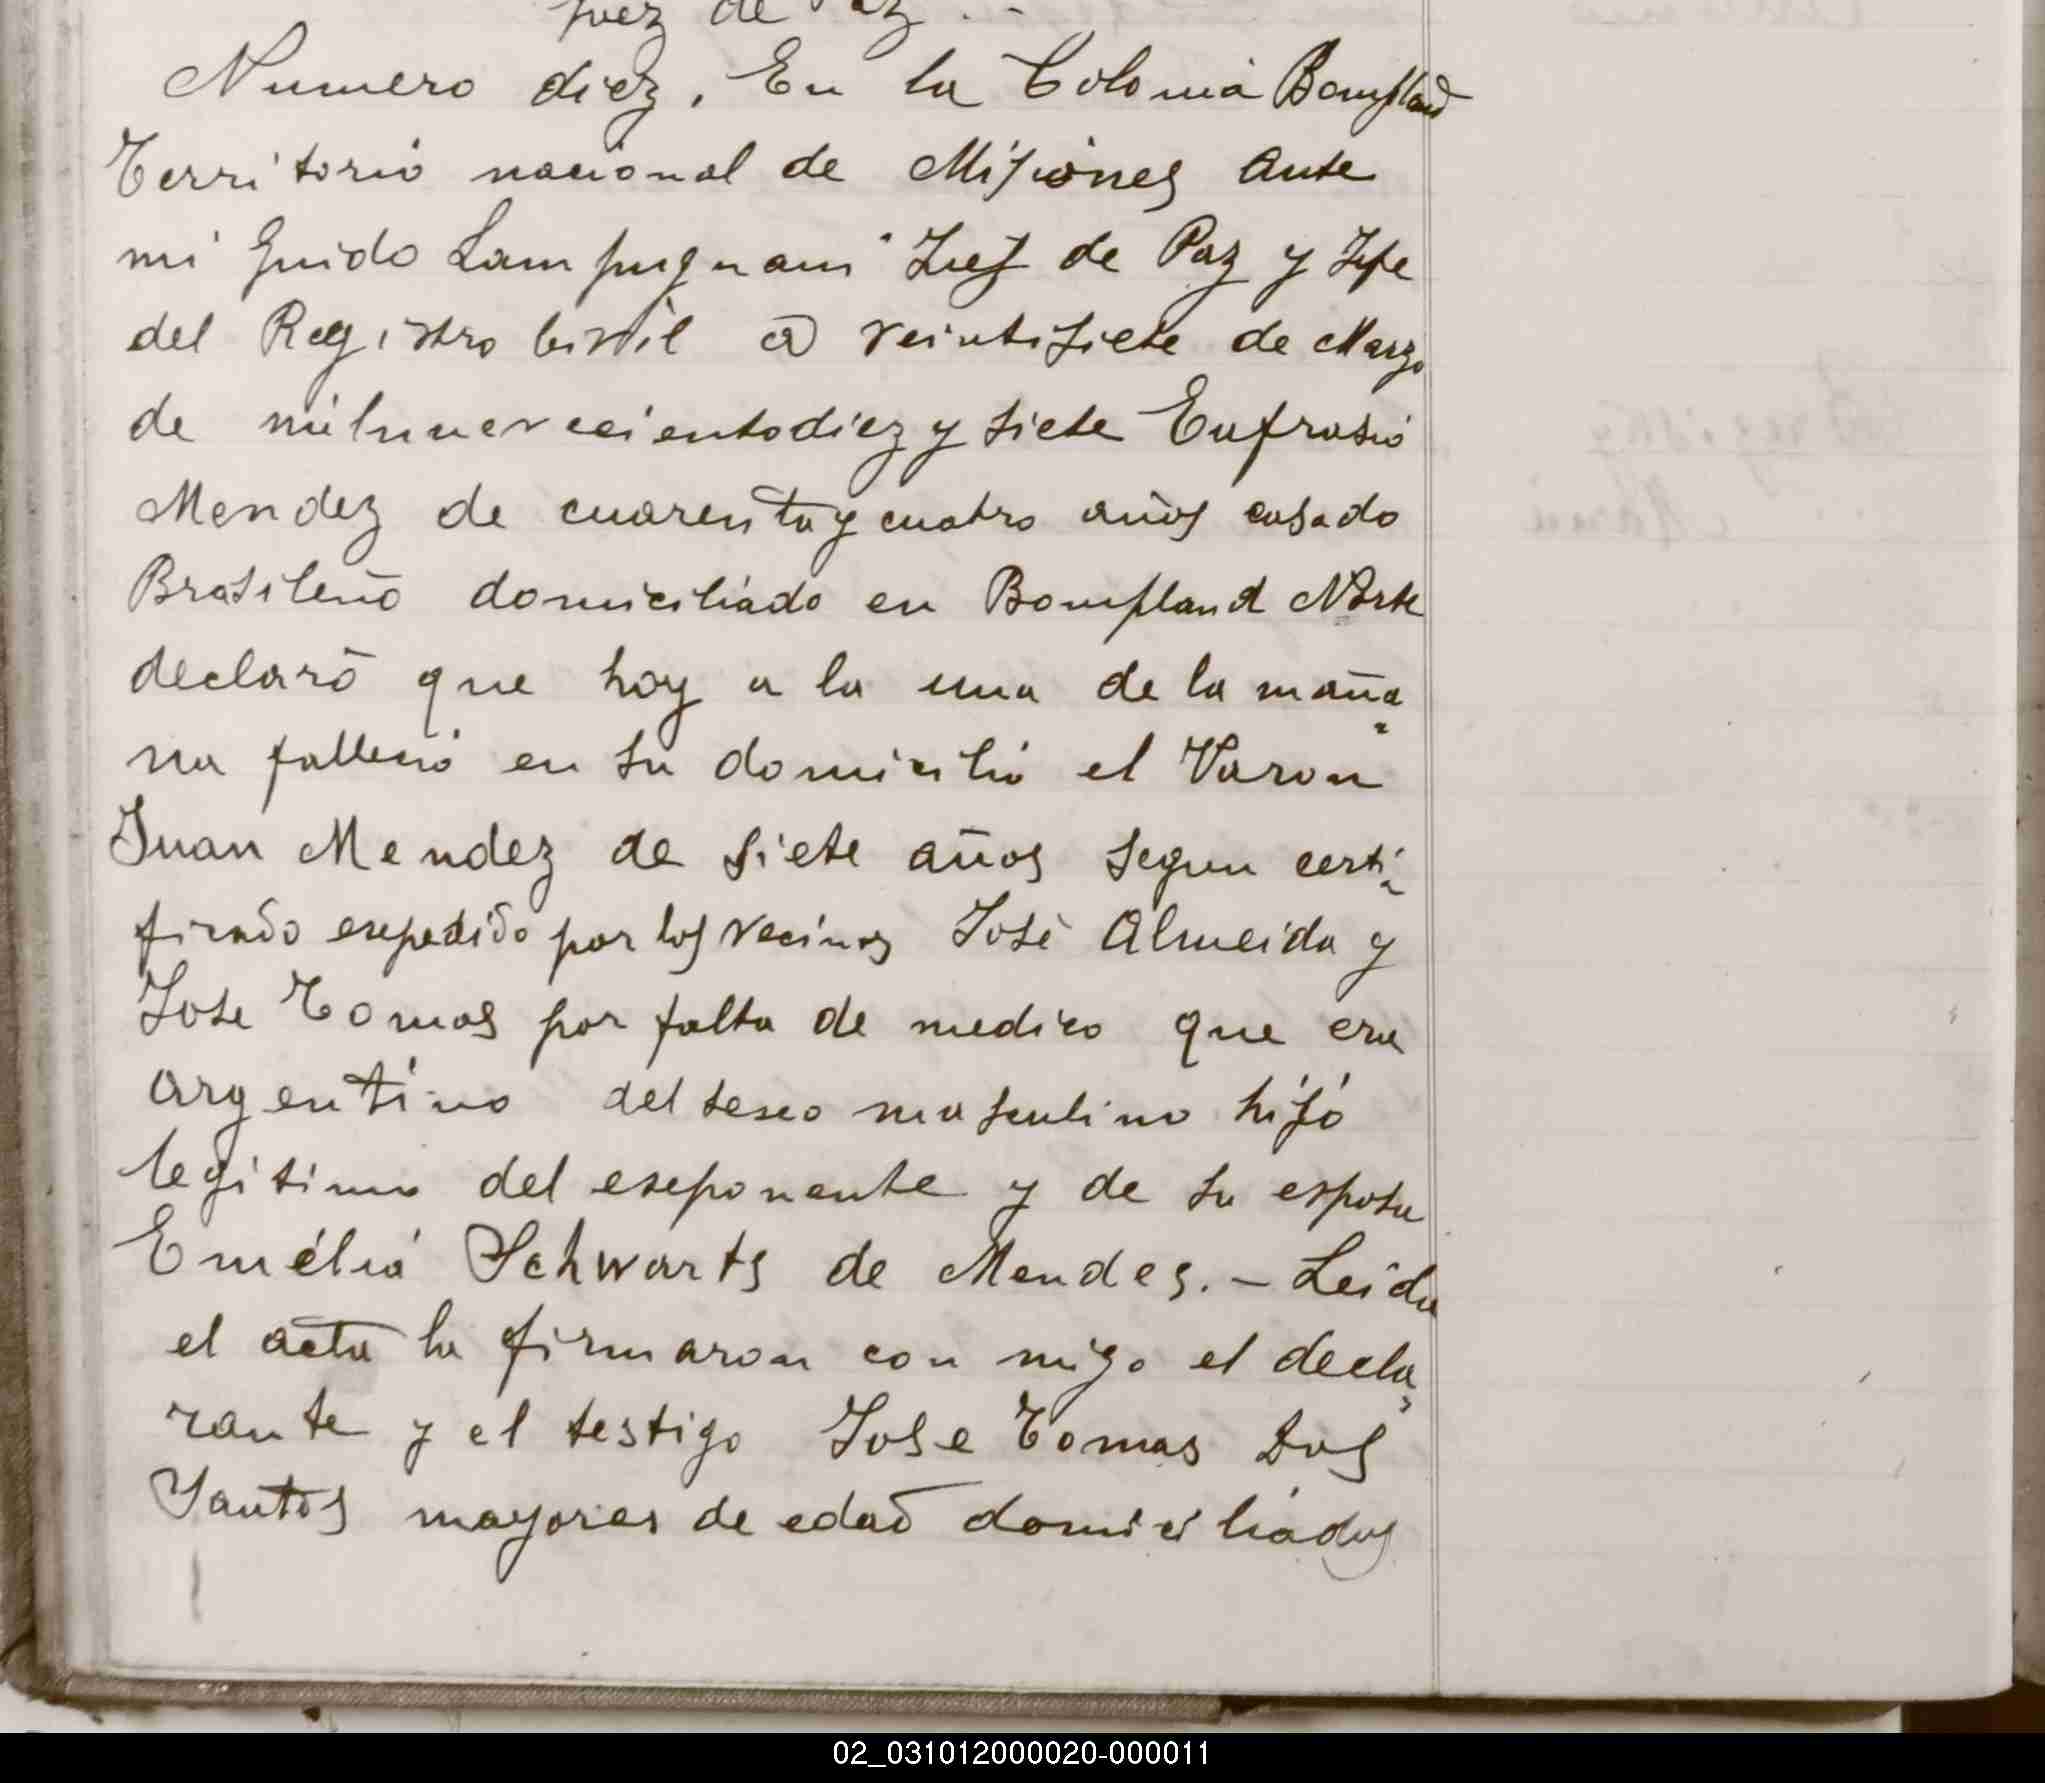 juez de Paz
Numero diez. En la Colonia Bompland
Territorio nacional de Misiones ante
mi Guido Lampugnani Juez de Paz y Jefe
del Registro Civil a veintisiete de Marzo
de milnuevecientodiez y siete Eufrasio
Mendez de cuarenta y cuatro años casado
Brasileño domiciliado en Bompland Norte
declaró que hoy a la una de la maña=
na falleció en su domicilio el Varon
Juan Mendez de siete años segun certi=
ficado expedido por los vecinos José Almeida y
Jose Tomas por falta de medico que era
argentino del sexo masculino hijo
legitimo del exponente y de su esposa
Emélia Schwarts de Mendes. – Leida
el acta la firmaron con migo el decla=
rante y el testigo Jose Tomas Dos
Santos mayores de edad domiciliados
02_031012000020-000011